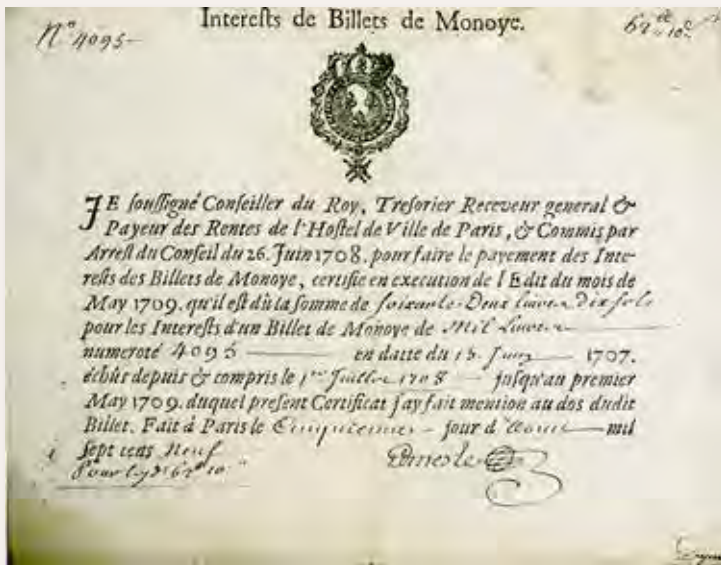 Interests de Billets de Monoye.
N.º 4095 -
62
JE soussigné Conseiller du Roy, Tresorier Receveur general &
Payeur des Rentes de l'Hostel de Ville de Paris, & Commis par
Arrest du Conseil du 26. Juin 1708. pour faire le payement des Inte-
rests des Billets de Monoye, certifie en execution de l'Edit du mois de
May 1709. qu'il est dû la somme de soixante Deux livres dix sols
pour les Interests d'un Billet de Monoye de Mil Livres
numeroté 4095 en datte du 15. Juin 1707.
échûs depuis & compris le 1er Juillet 1708 jusqu'au premier
May 1709. duquel present Certificat j'ay fait mention au dos dudit
Billet. Fait à Paris le Cinquiesme jour d'Aoust mil
sept cens Neuf
Pour